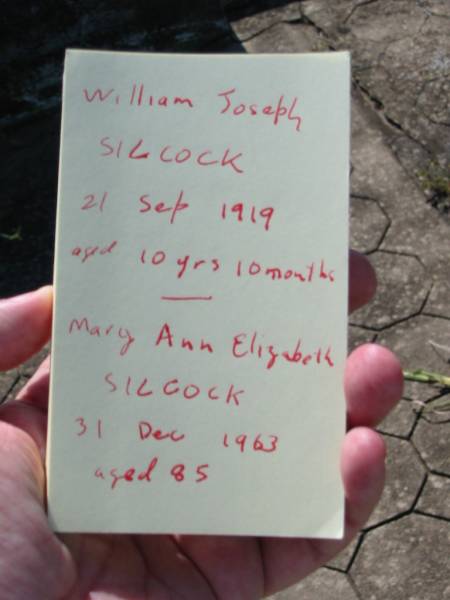 William Joseph
SILCOCK
21 Sep 1919
aged 10 yrs 10 months
Mary Ann Elizabeth
SILCOCK
31 Dec 1963
aged 85